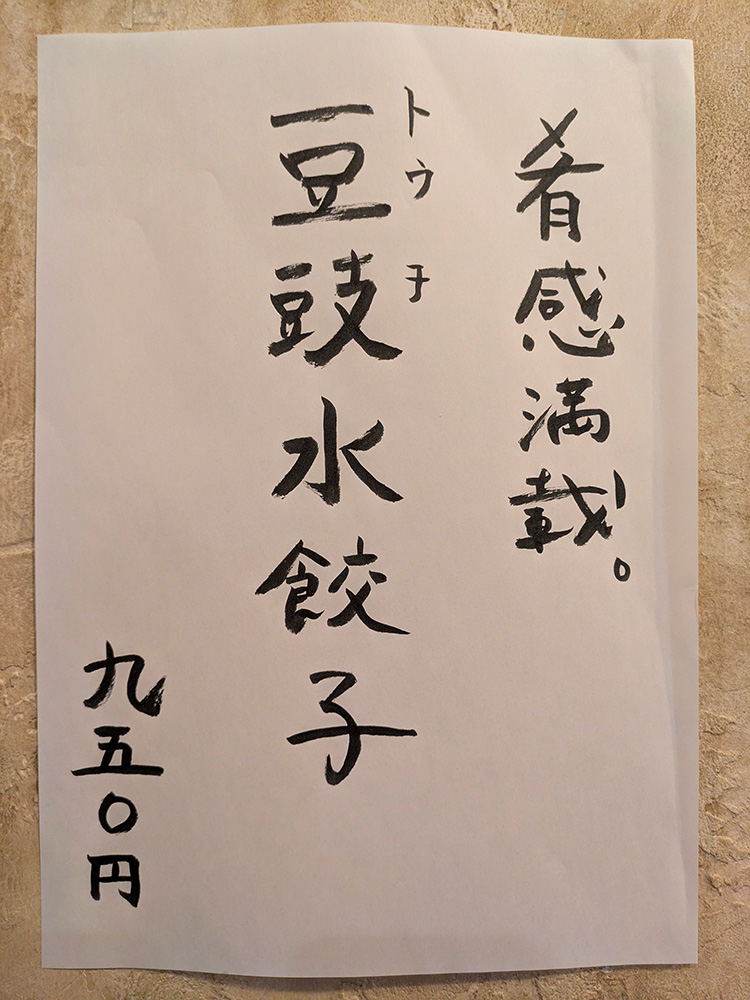 肴感満載。
トウチ
豆豉水餃子
九五〇円